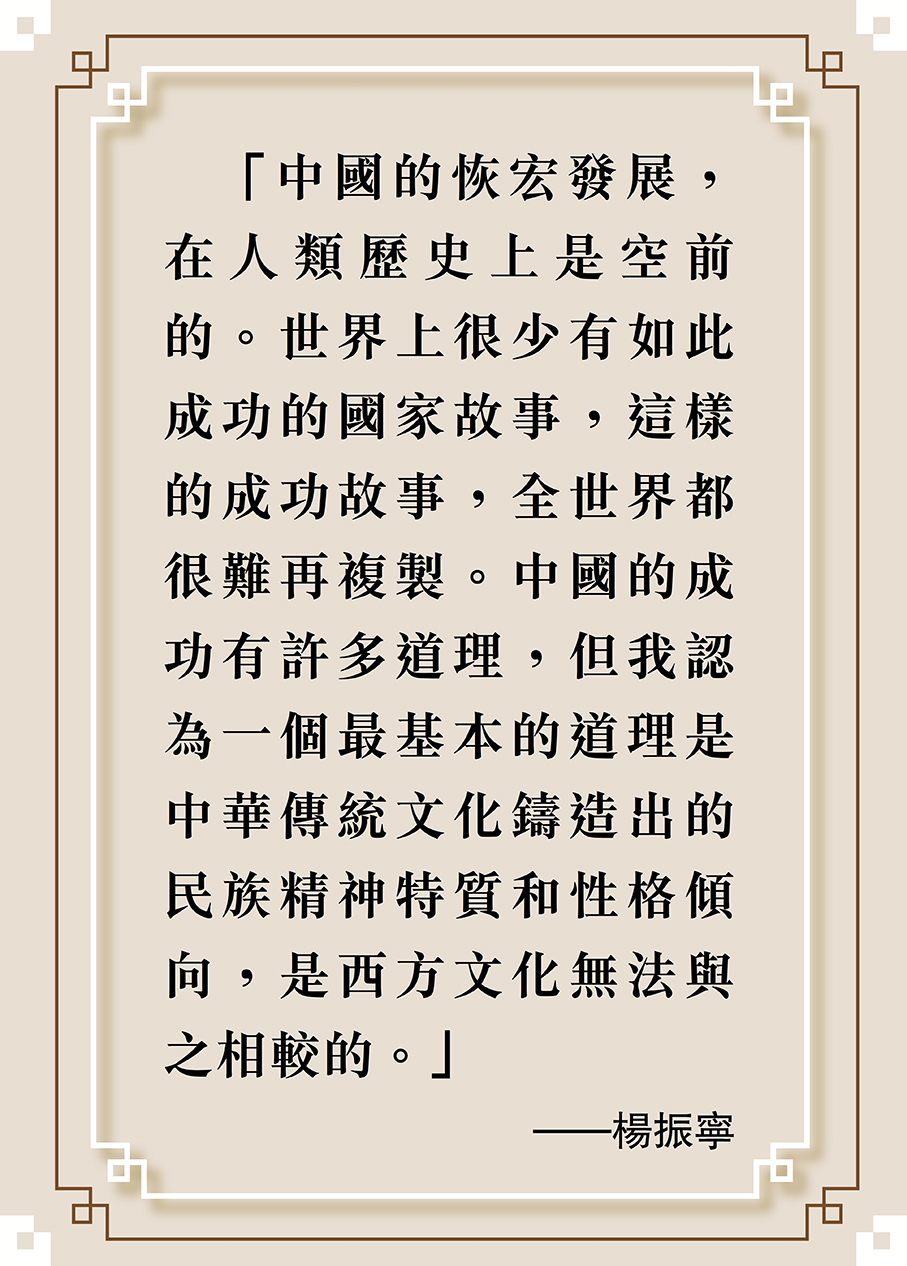 「中國的恢宏發展，
在人類歷史上是空前
的。世界上很少有如此
成功的國家故事，這樣
的成功故事，全世界都
很難再複製。中國的成
功有許多道理，但我認
為一個最基本的道理是
中華傳統文化鑄造出的
民族精神特質和性格傾
向，是西方文化無法與
之相較的。」
——楊振寧